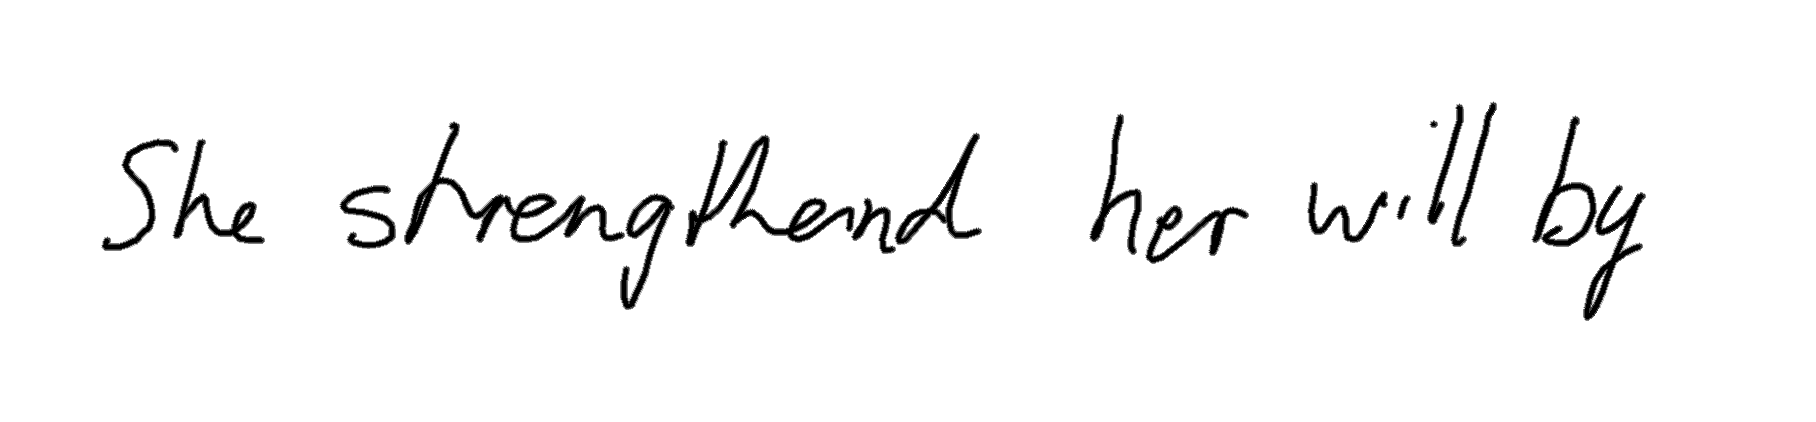 She strengthend her will by